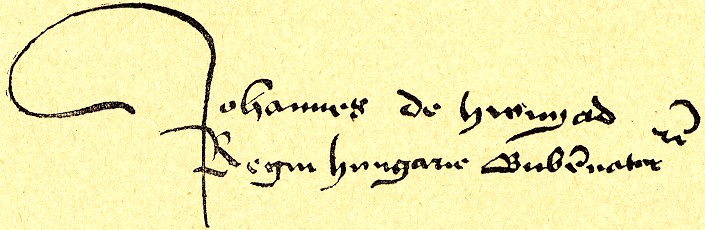 Johannes de Hwnyad
Regni hungarie Gub̄nator